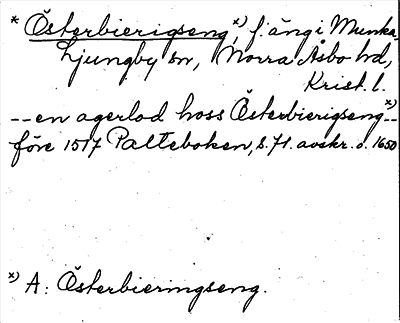 * Österbierigseng,x) f. äng i Munka-
Ljungby sn, Norra Åsbo hd,
Krist. l.
-- en agerlod hoss Österbierigseng x) --
före 1517 Palteboken, s. 71. avskr. o. 1650
x) A: Österbieringseng.